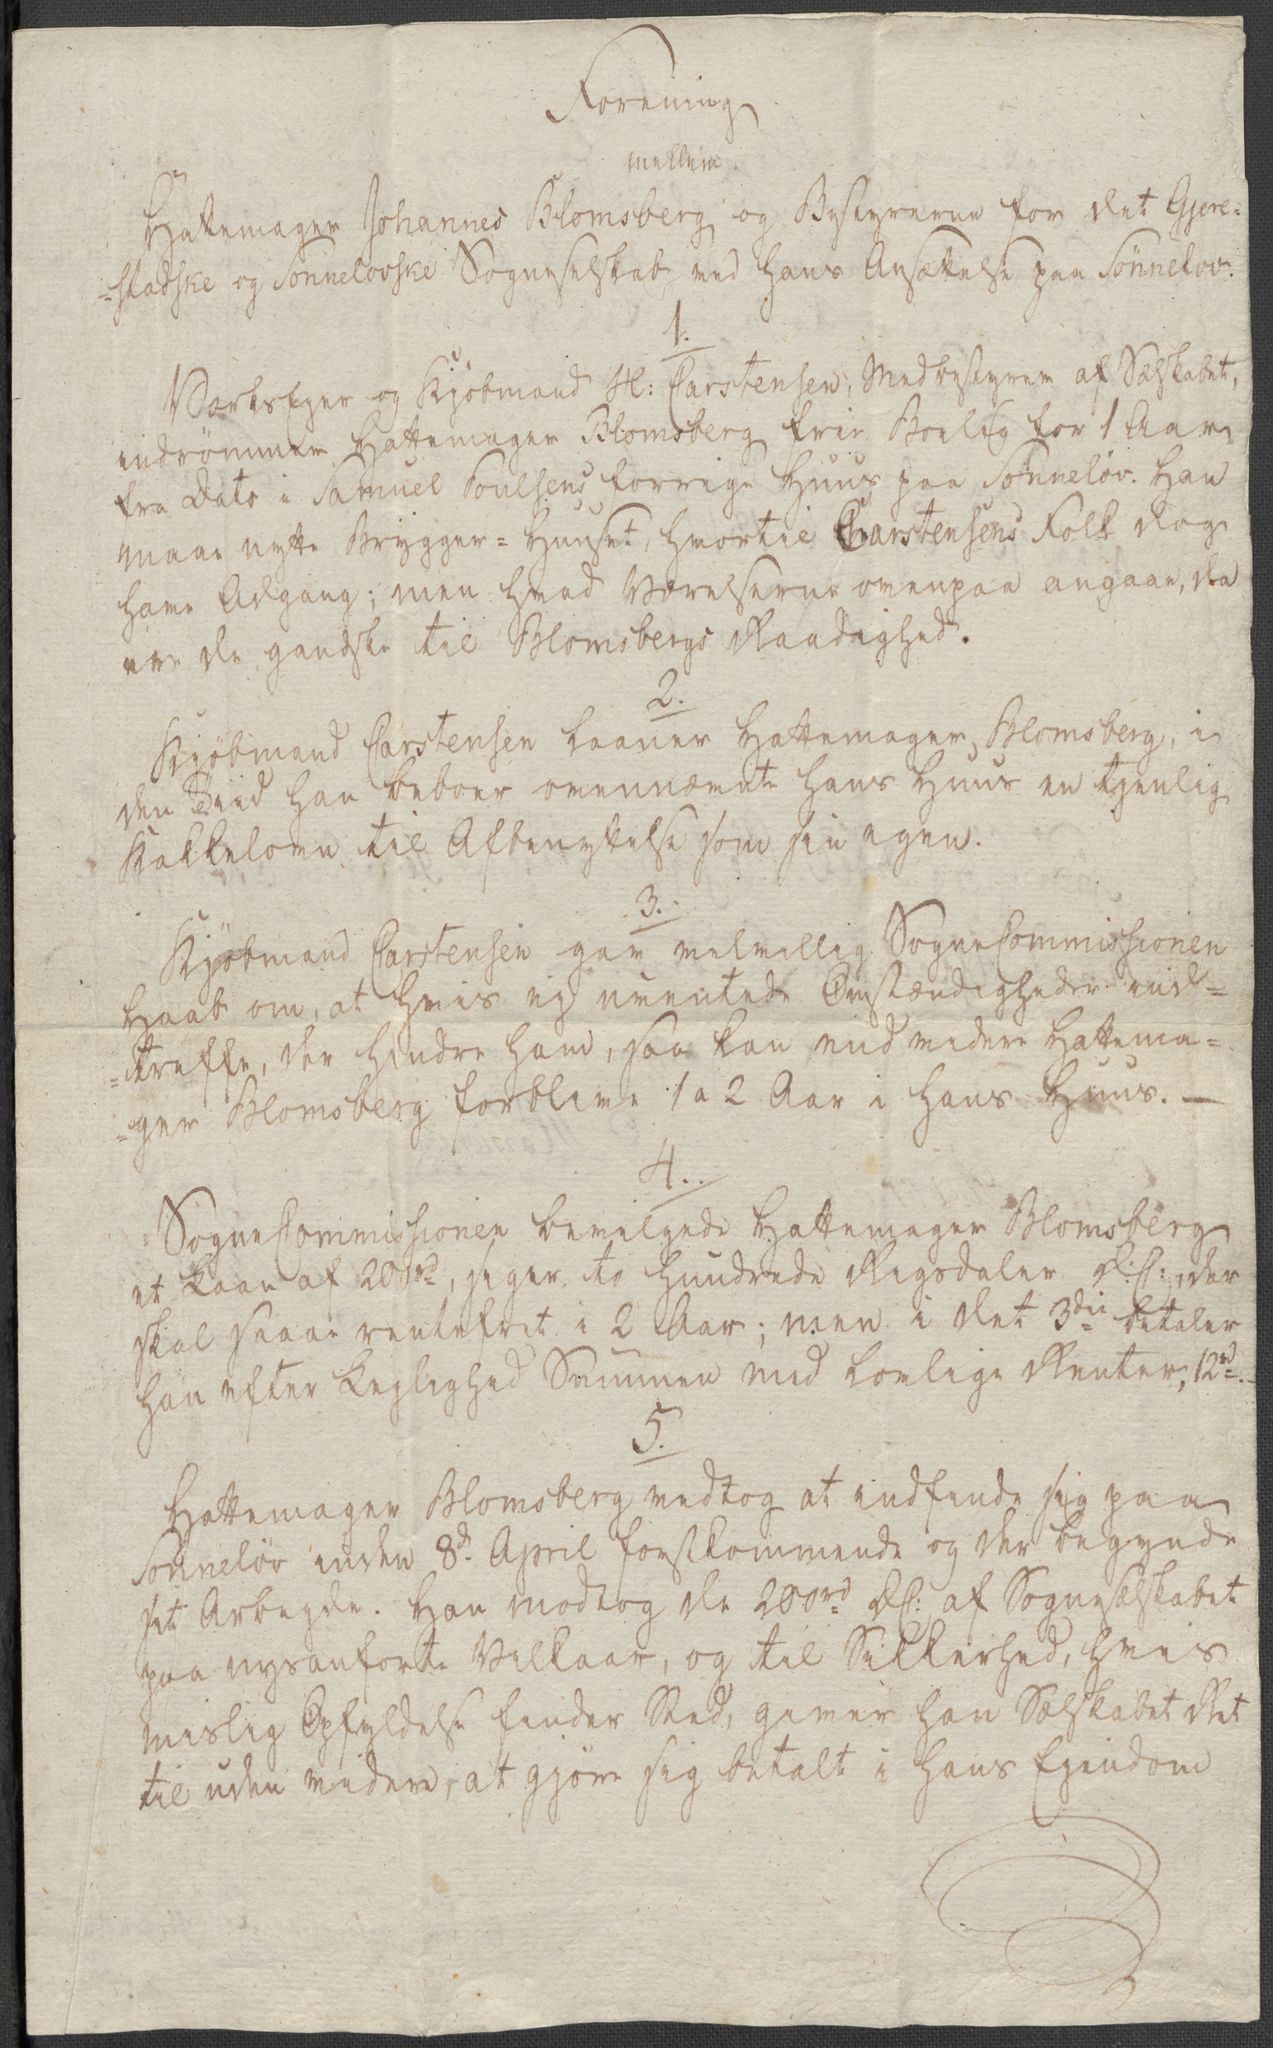 Forening
mellem
Hattemager Johannes Blomsberg og Bestyrerne for det Gjere=
=stadske og Sønneløvske Sogneselskab ved hans Ansættelse paa Sønneløv.
1.
Værkseger og Kjøbmand H: Carstensen, Medbestyrer af Selskabet,
indrømmer Hattemager Blomsberg frie Boelig for 1 Aar
fra Dato i Samuel Poulsens forrige Huus paa Sønneløv. Han
maae nytte Brygger=Huuset, hvortil Carstensens Folk dog
have Adgang; men hvad Værelserne ovenpaa angaae, da
ere de gandske til Blomsbergs Raadighed.
2.
Kjøbmand Carstensen laaner Hattemager Blomsberg, i
den Tiid han beboer ovennævnte hans Huus en tjenlig
Kakkelovn til Afbenyttelse som sin egen.
3.
Kjøbmand Carstensen gav velvillig SogneCommissionen
Haab om, at hvis ej uventede Omstændigheder ind=
=treffe, der hindre ham, saa kan end videre Hattema=
=ger Blomsberg forblive 1 a 2 Aar i hans Huus. —
4.
SogneCommissionen bevilgede Hattemager Blomsberg
et Laan af 200rd, siger to Hundrede Rigsdaler D:C:, der
skal staae rentefrit i 2 Aar; men i det 3die betaler
han efter Leylighed Summen med lovlige Renter, 12rd.
5.
Hattemager Blomsberg vedtog at indfinde sig paa
Sønneløv inden 8d. April førstkommende og der begynde
sit Arbeyde. Han modtog de 200rd DC: af Sogneselskabet
paa nysanførte Vilkaar, og til Sikkerhed, hvis
mislig Opfyldelse finder Sted, giver han Selskabet Ret
til uden videre, at gjøre sig betalt i hans Ejendom